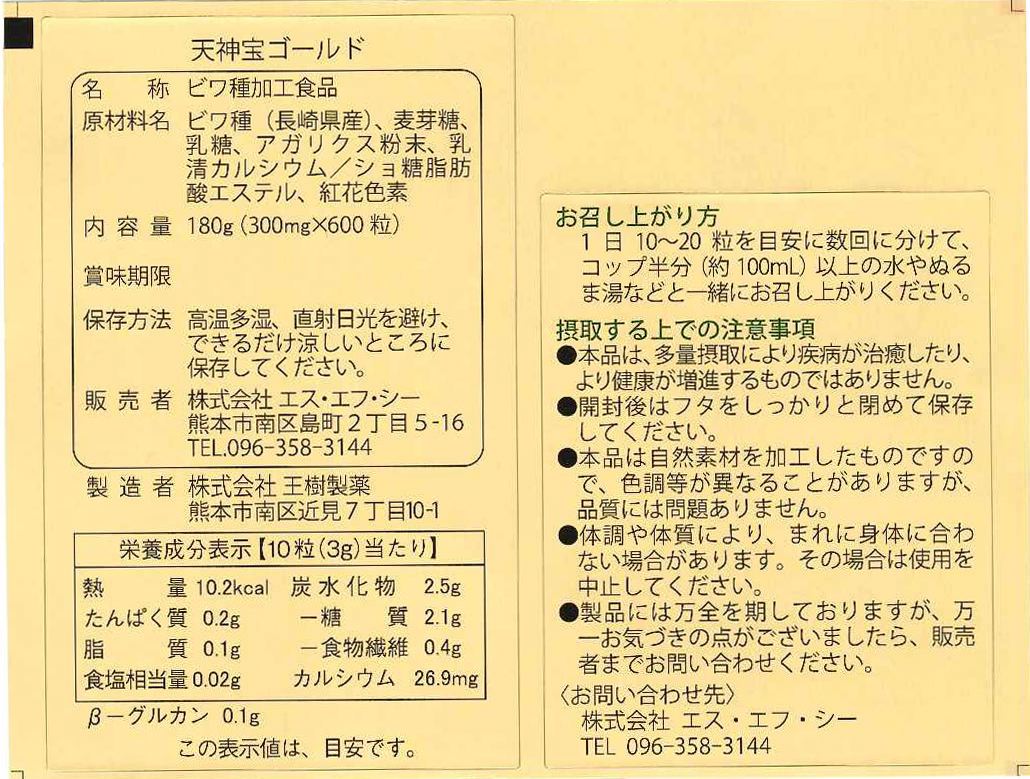 天神宝ゴールド
名　称 ビワ種加工食品
原材料名 ビワ種（長崎県産）、麦芽糖、
乳糖、アガリクス粉末、乳
清カルシウム／ショ糖脂肪
酸エステル、紅花色素
内容量 180g（300mg×600粒）
賞味期限
保存方法 高温多湿、直射日光を避け、
できるだけ涼しいところに
保存してください。
販売者 株式会社 エス・エフ・シー
熊本市南区島町２丁目5-16
TEL.096-358-3144
製造者 株式会社 王樹製薬
熊本市南区近見７丁目10-1
栄養成分表示【10粒(3g)当たり】
熱　量 10.2kcal 炭水化物 2.5g
たんぱく質 0.2g －糖　質 2.1g
脂　質 0.1g －食物繊維 0.4g
食塩相当量 0.02g カルシウム 26.9mg
β－グルカン 0.1g
この表示値は、目安です。
お召し上がり方
１日 10～20 粒を目安に数回に分けて、
コップ半分（約 100mL）以上の水やぬる
ま湯などと一緒にお召し上がりください。
摂取する上での注意事項
●本品は、多量摂取により疾病が治癒したり、
より健康が増進するものではありません。
●開封後はフタをしっかりと閉めて保存
してください。
●本品は自然素材を加工したものですの
で、色調等が異なることがありますが、
品質には問題ありません。
●体調や体質により、まれに身体に合わ
ない場合があります。その場合は使用を
中止してください。
●製品には万全を期しておりますが、万
一お気づきの点がございましたら、販売
者までお問い合わせください。
〈お問い合わせ先〉
株式会社 エス・エフ・シー
TEL 096-358-3144